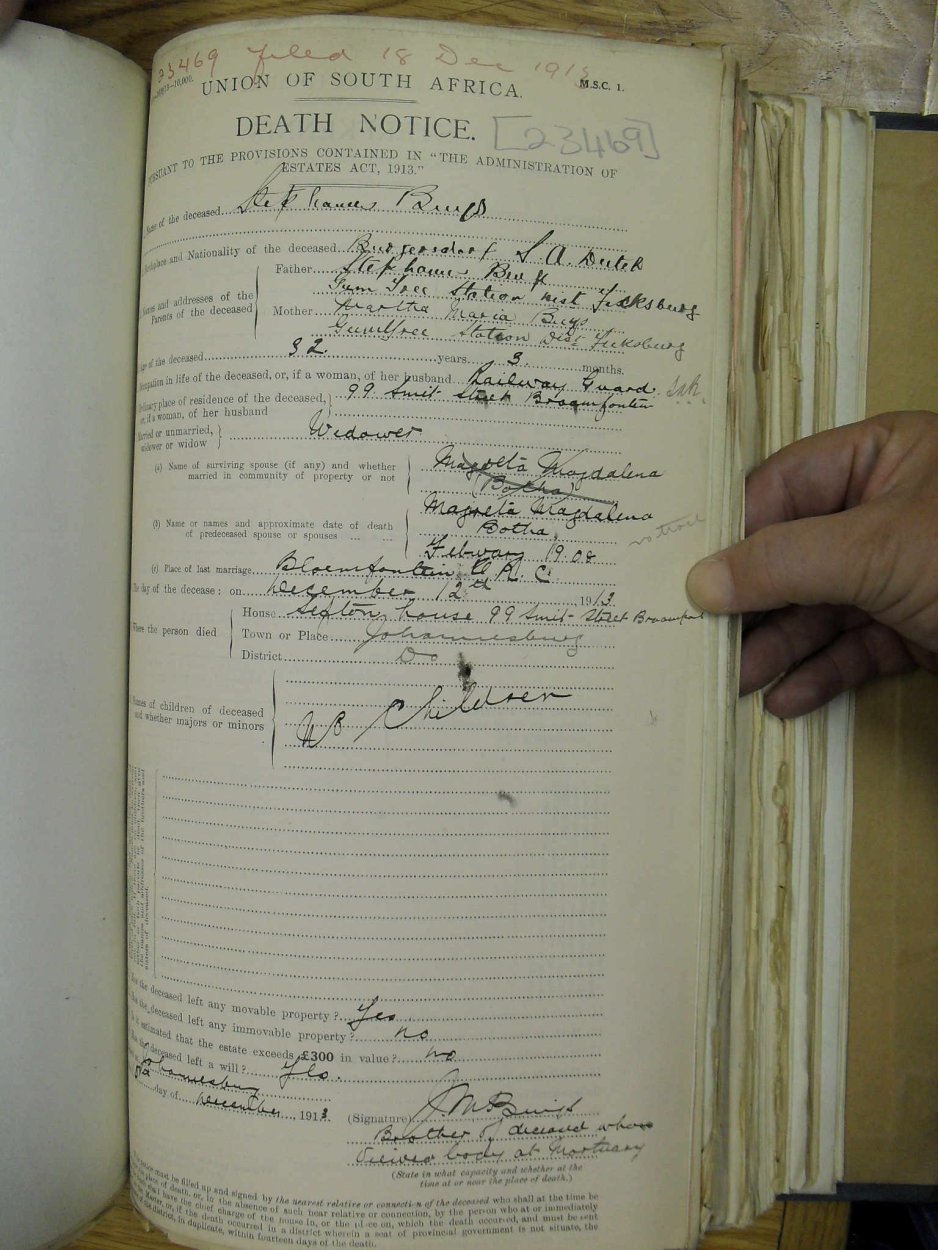 23469 Filed 18 Dec 1913
UNION OF SOUTH AFRICA.
M.S.C. 1.
DEATH NOTICE. [23469]
PURSUANT TO THE PROVISIONS CONTAINED IN "THE ADMINISTRATION OF
ESTATES ACT, 1913."
Name of the deceased Stephanus Buys
Birthplace and Nationality of the deceased Burgersdorf S. A. Dutch
Names and addresses of the Parents of the deceased
Father Stephanus Buys
Gum Tree Station Dist Ficksburg
Mother Martha Maria Buys
Gumtree Station Dist Ficksburg
Age of the deceased 32 years 3 months.
Occupation in life of the deceased, or, if a woman, of her husband Railway Guard. SAR
Ordinary place of residence of the deceased, or, if a woman, of her husband 99 Smit Street Braamfontein
Married or unmarried, widower or widow Widower
(a) Name of surviving spouse (if any) and whether married in community of property or not Magreta Magdalena
(Botha)
(b) Name or names and approximate date of death of predeceased spouse or spouses Magreta Magdalena
Botha,
February 1908
(c) Place of last marriage Bloemfontein O. R. C.
The day of the decease: on December 12th, 1913.
Where the person died
House Sefton house 99 Smit Street Braamfont
Town or Place Johannesburg
District Do
Names of children of deceased and whether majors or minors
No Children
Has the deceased left any movable property? Yes
Has the deceased left any immovable property? no
Is it estimated that the estate exceeds £300 in value? no
Has the deceased left a will? Yes.
Johannesburg
day of December, 1913.
(Signature)
Brother of deceased who
viewed body at Mortuary
(State in what capacity and whether at the
time at or near the place of death.)
notice must be filled up and signed by the nearest relative or connection of the deceased who shall at the time be
place of death, or, in the absence of such near relative or connection, by the person who at or immediately
shall have the chief charge of the house in, or the place on, which the death occurred, and must be sent
Master, or, if the death occurred in a district wherein a seat of provincial government is not situate, the
of the district, in duplicate, within fourteen days of the death.